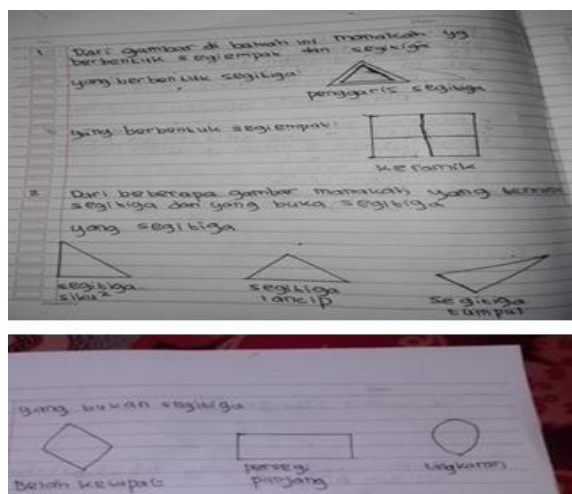 1 Dari gambar di bawah ini manakah yg
berbentuk segiempat dan segitiga
yang berbentuk segitiga:
penggaris segitiga
yang berbentuk segiempat:
keramik
2 Dari beberapa gambar manakah yang
segitiga dan yang buka segitiga
yang segitiga
segitiga
siku²
segitiga
lancip
segitiga
tumpul
yang bukan segitiga
Belah ketupat
persegi
panjang
Lingkaran